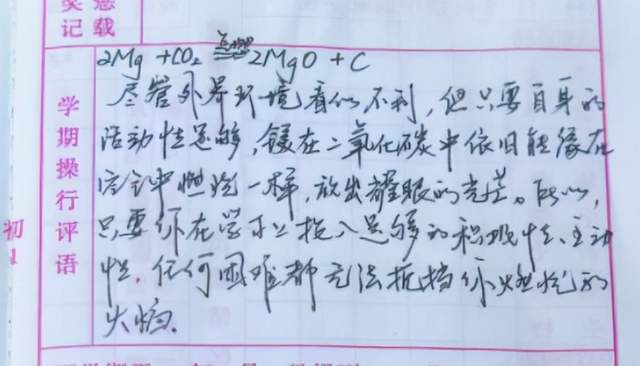 奖惩
记载
学期操行评语
初1
2Mg + CO₂ 点燃 2MgO + C
尽管外界环境看似不利，但只要自身的
活动性足够，镁在二氧化碳中依旧能像在
空气中燃烧一样，放出耀眼的光芒。所以，
只要你在学业上投入足够的积极性、主动
性，任何困难都无法抵挡你燃烧的
火焰。